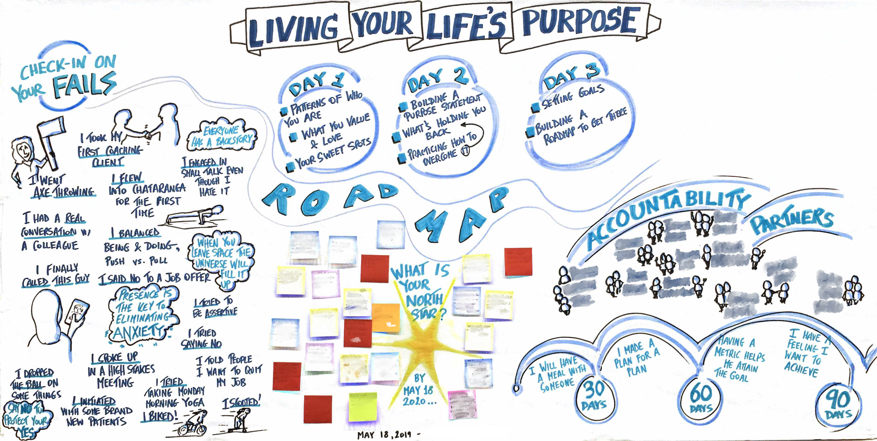 LIVING YOUR LIFE'S PURPOSE
CHECK-IN ON
YOUR FAILS
I TOOK MY
FIRST COACHING
CLIENT
EVERYONE
HAS A BACKSTORY
I WENT
AXE THROWING
I FLEW
INTO CHATARANGA
FOR THE FIRST
TIME
I ENGAGED IN
SMALL TALK EVEN
THOUGH I
HATE IT
I HAD A REAL
CONVERSATION W/
A COLLEAGUE
I BALANCED
BEING & DOING,
PUSH VS. PULL
WHEN YOU
LEAVE SPACE THE
UNIVERSE WILL
FILL IT
UP
I FINALLY
CALLED THIS GUY
I SAID NO TO A JOB OFFER
PRESENCE IS
THE KEY TO
ELIMINATING
ANXIETY
I TRIED TO
BE ASSERTIVE
I TRIED
SAYING NO
I DROPPED
THE BALL ON
SOME THINGS
I CHOKE UP
IN A HIGH STAKES
MEETING
I TOLD PEOPLE
I WANT TO QUIT
MY JOB
SAY NO TO
PROTECT YOUR
YES
I INITIATED
WITH SOME BRAND
NEW PATIENTS
I TRIED
TAKING MONDAY
MORNING YOGA
I BIKED!
I SCOOTED!
DAY 1
PATTERNS OF WHO
YOU ARE
WHAT YOU VALUE
& LOVE
YOUR SWEET SPOTS
DAY 2
BUILDING A
PURPOSE STATEMENT
WHAT'S HOLDING YOU
BACK
PRACTICING HOW TO
OVERCOME IT
DAY 3
SETTING GOALS
BUILDING A
ROADMAP TO GET THERE
ROAD
MAP
WHAT IS
YOUR
NORTH
STAR?
BY
MAY 18
2020...
MAY 18, 2019 -
ACCOUNTABILITY
PARTNERS
I WILL HAVE
A MEAL WITH
SOMEONE
30
DAYS
I MADE A
PLAN FOR A
PLAN
60
DAYS
HAVING A
METRIC HELPS
ME ATTAIN
THE GOAL
I HAVE A
FEELING I
WANT TO
ACHIEVE
90
DAYS